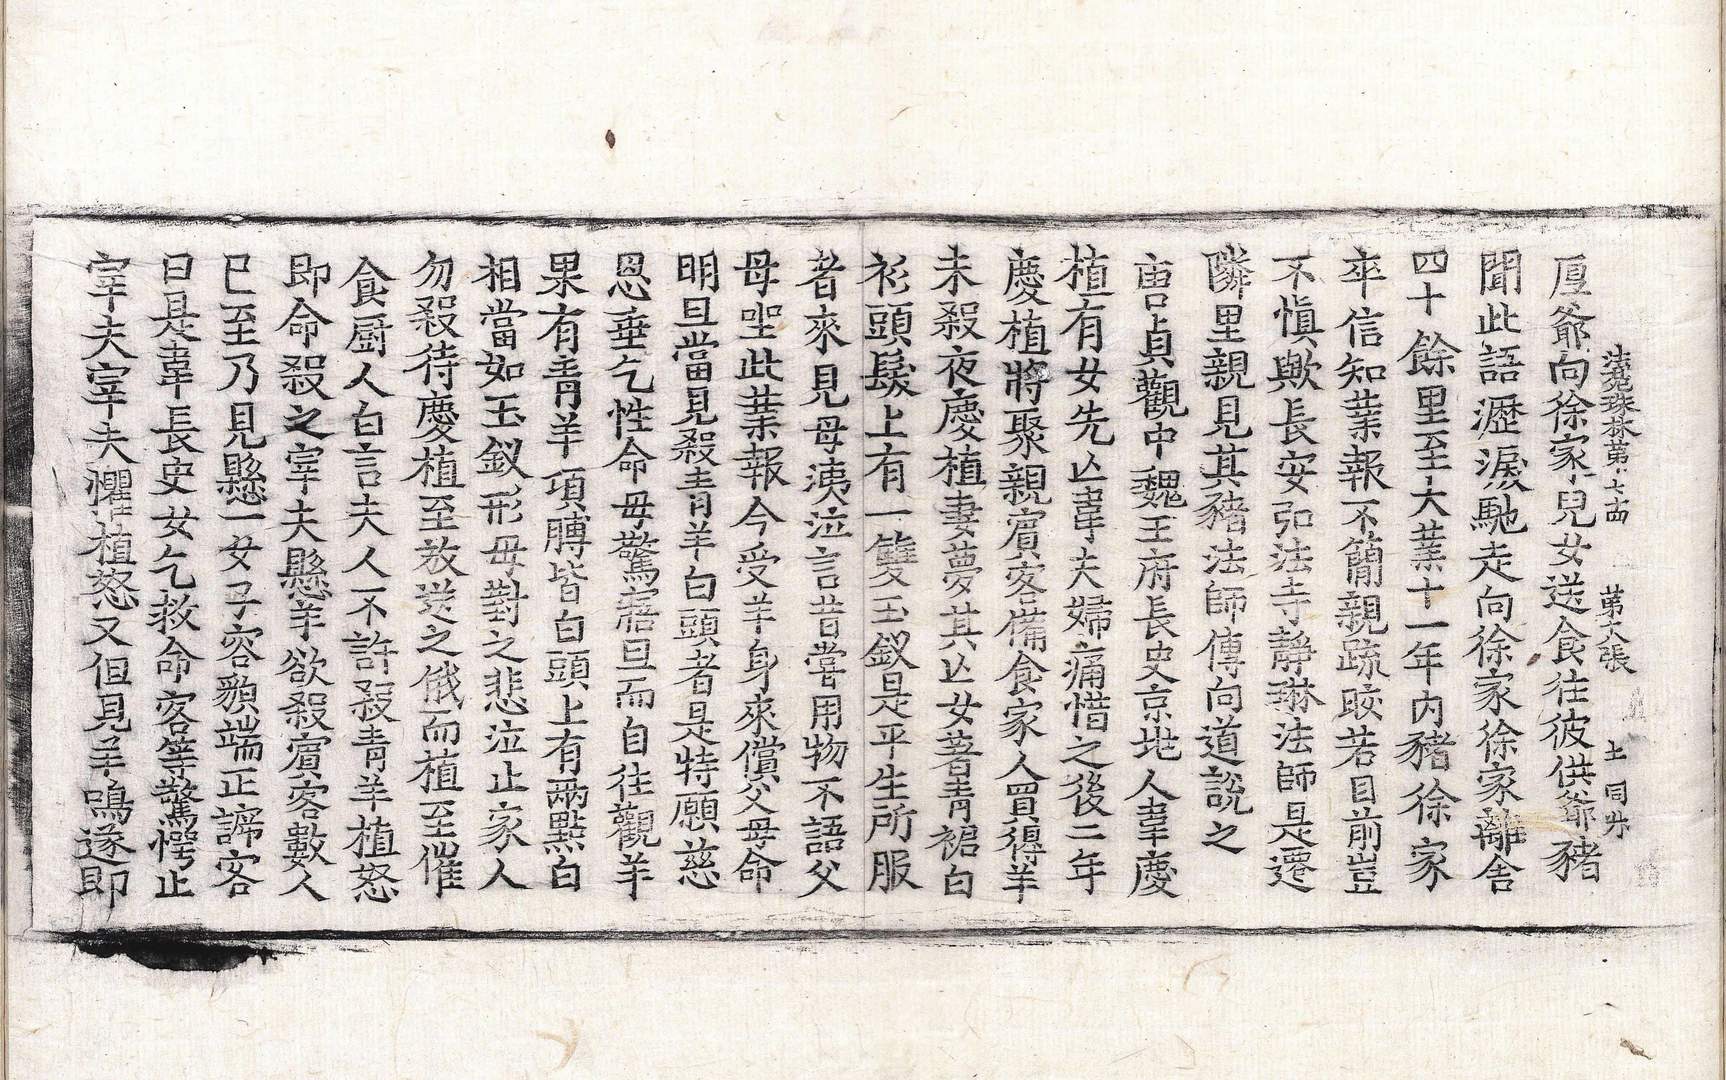 法苑珠林第七十四 第六張 土 同州
厚爺向徐家兒女送食往彼供爺豬
聞此語瀝淚馳走向徐家徐家離舍
四十餘里至大業十一年內豬徐家
卒信知業報不簡親踈皎若目前豈
不慎歟長安弘法寺靜琳法師是遷
隣里親見其豬法師傳向道說之
唐貞觀中魏王府長史京地人韋慶
植有女先亡韋夫婦痛惜之後二年
慶植將聚親賓客備食家人買得羊
未殺夜慶植妻夢其亡女著青裙白
衫頭髮上有一雙玉釵是平生所服
者來見母涕泣言昔嘗用物不語父
母坐此業報今受羊身來償父母命
明旦當見殺青羊白頭者是特願慈
恩垂乞性命母驚寤旦而自往觀羊
果有青羊項膊皆白頭上有兩點白
相當如玉釵形母對之悲泣止家人
勿殺待慶植至放送之俄而植至催
食厨人白言夫人不許殺青羊植怒
即命殺之宰夫懸羊欲殺賓客數人
已至乃見懸一女子容貌端正諦客
曰是韋長史女乞救命客等驚愕止
宰夫宰夫懼植怒又但見羊鳴遂即